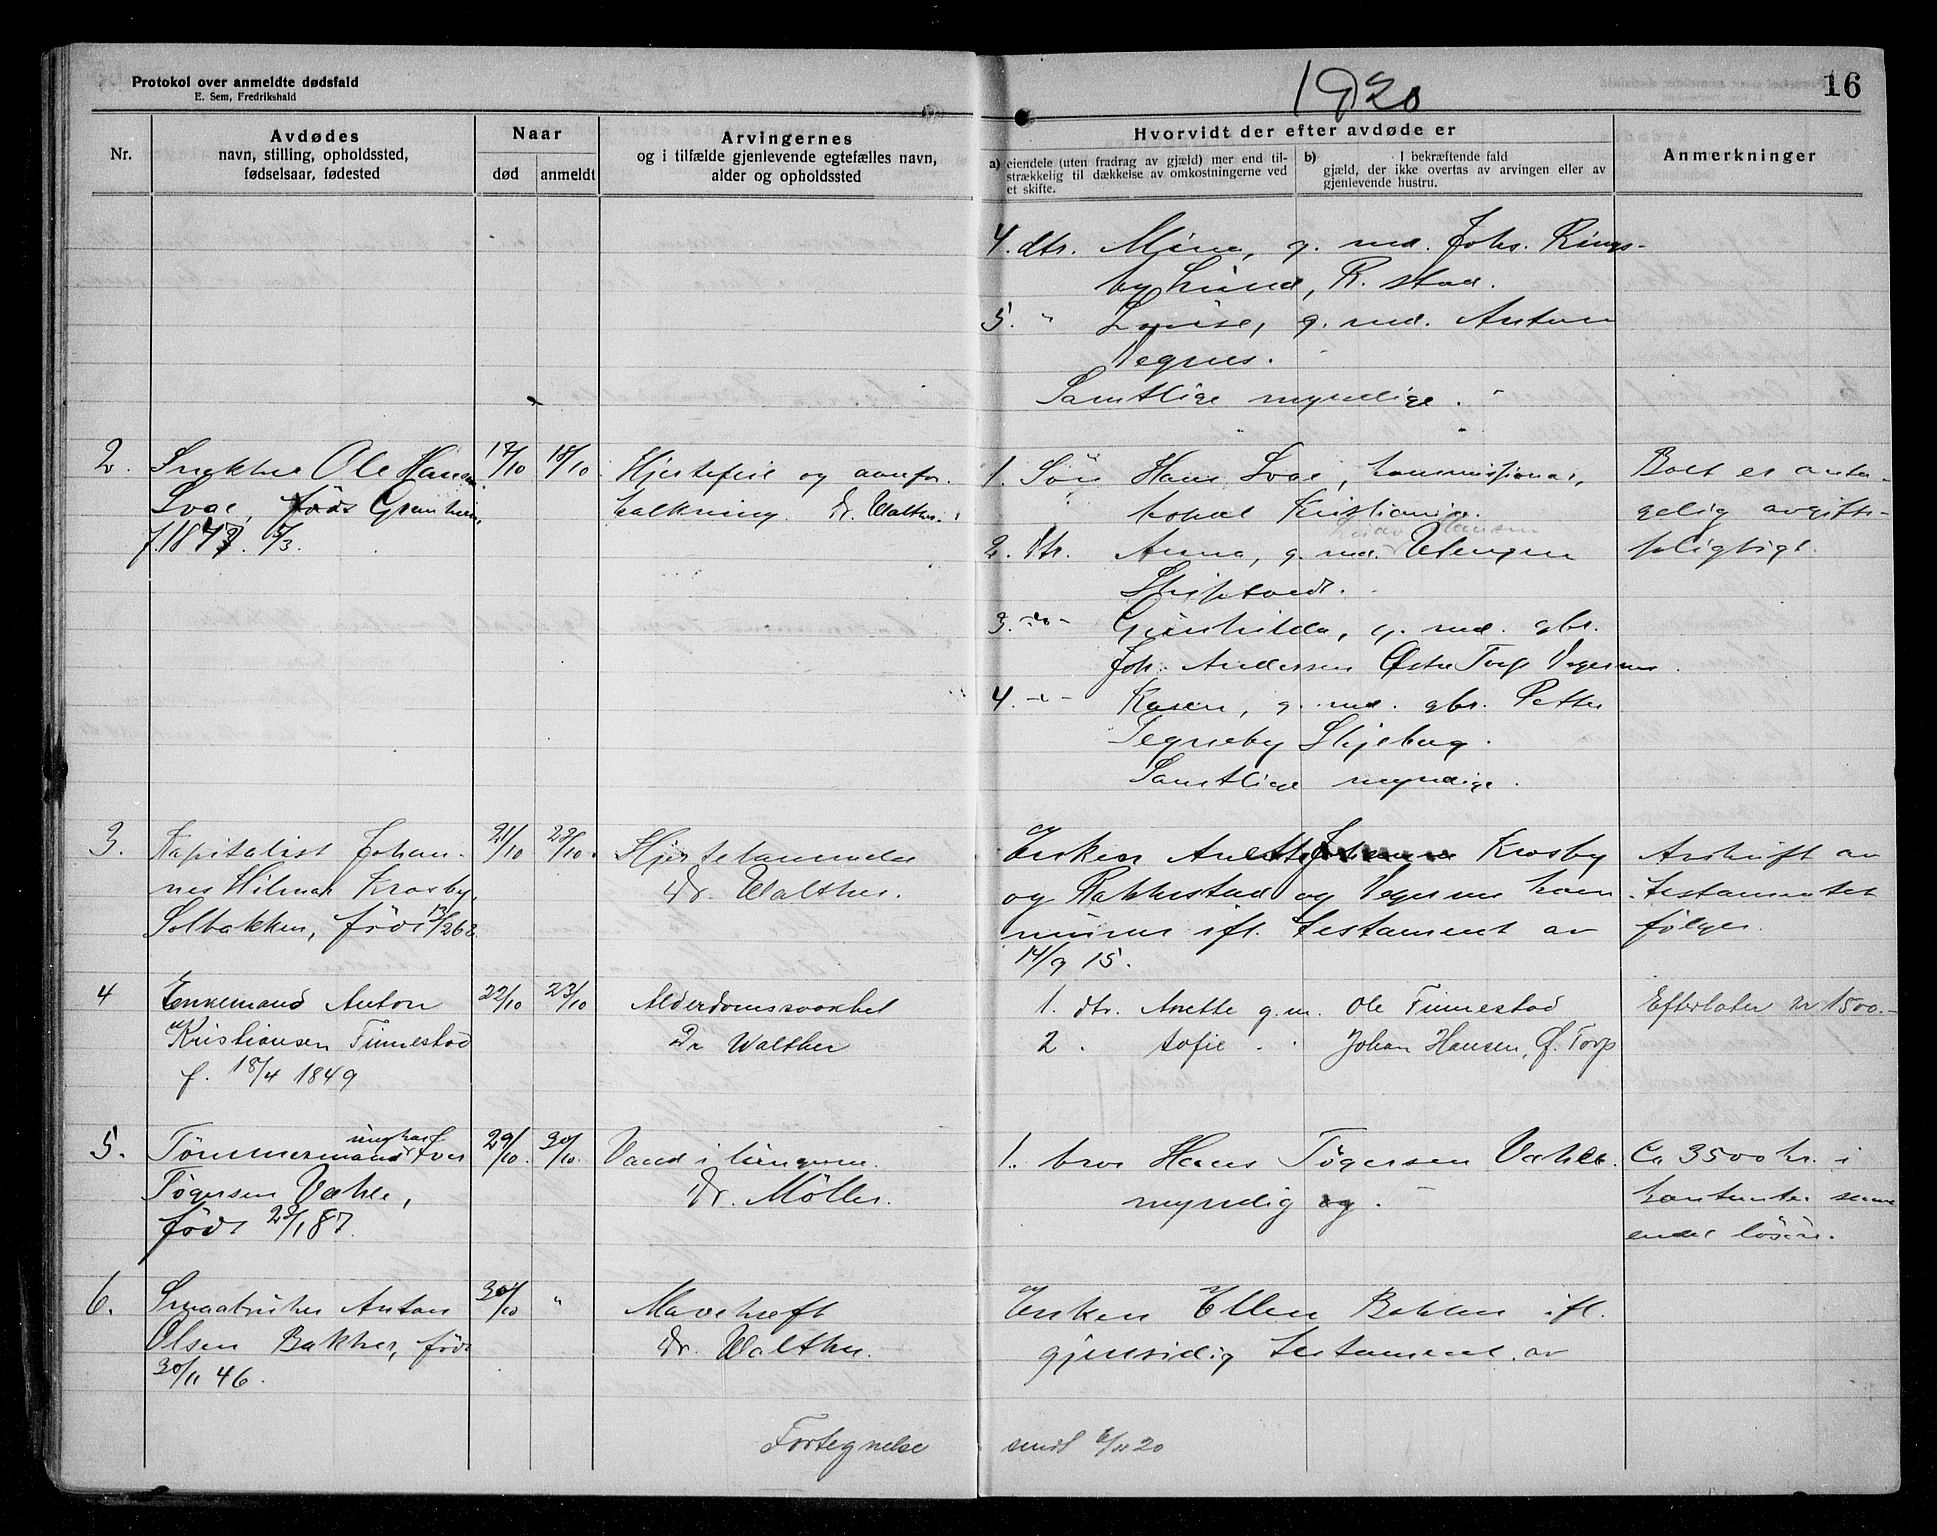 Protokol over anmeldte dødsfald
E. Sem, Fredrikshald
1920
16
Nr.
Avdødes
navn, stilling, opholdssted,
fødselsaar, fødested
Naar
død
anmeldt
Arvingernes
og i tilfælde gjenlevende egtefælles navn,
alder og opholdssted
Hvorvidt der efter avdøde er
a) eiendele (uten fradrag av gjæld) mer end til-
strækkelig til dækkelse av omkostningerne ved
et skifte.
b) I bekræftende fald
gjæld, der ikke overtas av arvingen eller av
gjenlevende hustru.
Anmerkninger
4. dtr. Mina, g. med. Johs. Rings-
by Lund, R.stad.
5. " Lovise, g. med. Anton
Tegnes.
Samtlige myndige.
2. Ole Hansen
17/10 18/10
Svae, født Grønheim,
f. 5/3.
Hjertefeil og aarefor-
kalkning. Dr. Walther.
1. Søn Hans Svae, kommissionær,
Kristiania.
2. dtr. Anna, g. med. Hansen Ulengen
Skiptvedt.
3. -do- Gunhilda, g. med. gbr.
Joh. Andersen Østre Torp Degernes.
4. -"- Karen, g. med. gbr. Petter
Tegneby Skjeberg.
Samtlige myndige.
Boet er anta-
gelig avgifts-
pligtigt.
3. Kapitalist Johan-
nes Hilmar Krosby,
Solbakken, født
21/10 22/10.
Hjertelammelse
Dr. Walther.
Enken Anette Krosby
og Rakkestad og Degernes kom-
muner ifl. testament av
14/9 15.
Avskrift av
testamentet
følger.
4 Enkemand Anton
Kristiansen Finnestad
f. 18/4 1849
22/10 23/10
Alderdomssvakhet
Dr Walther
1. dtr. Anette g.m. Ole Finnestad
2 . Sofie . . Johan Hansen, Ø. Torp
Efterlater kr 1500.-
5. Tømmermand ungkar Iver
Tøgersen Vahle,
født
29/10. 30/10.
Vand i lungerne.
Dr. Möller.
1. bror Hans Tøgersen Vahle.
myndig og.
Ca 3500 kr. i
kontanter samt
endel løsøre.
6. Smaabruker Anton
Olsen Bakker, født
30/11 46.
30/10 "
Mavekræft
Dr. Walther.
Enken Ellen Bakker ifl.
gjensidig testament av
Fortegnelse
sendt 6/11 20